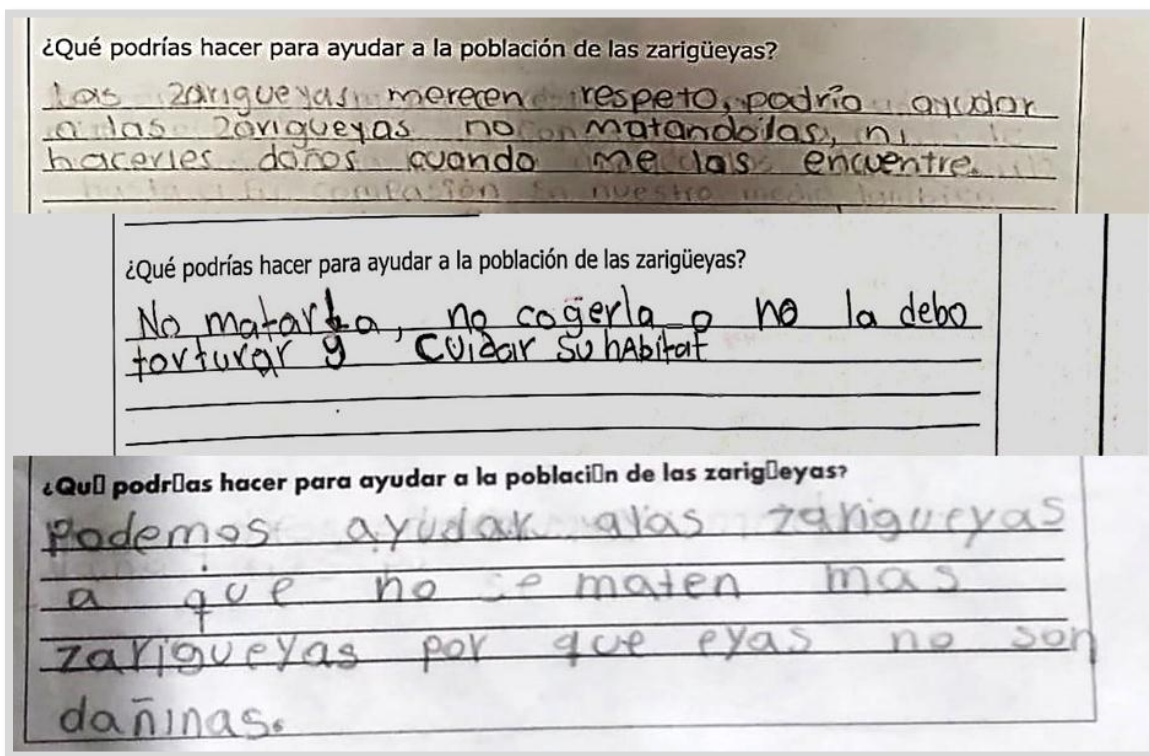 ¿Qué podrías hacer para ayudar a la población de las zarigüeyas?
Las zarigueyas merecen respeto, podría ayudar
a las zarigueyas no matandolas, ni
hacerles daños cuando me las encuentre.
compasión en nuestro medio también
¿Qué podrías hacer para ayudar a la población de las zarigüeyas?
No matarla, no cogerla o no la debo
torturar y cuidar su hAbitat
¿Qu▯ podr▯as hacer para ayudar a la poblaci▯n de las zarig▯eyas?
Podemos ayudar alas zarigueyas
a que no se maten mas
zarigueyas por que eyas no son
dañinas.